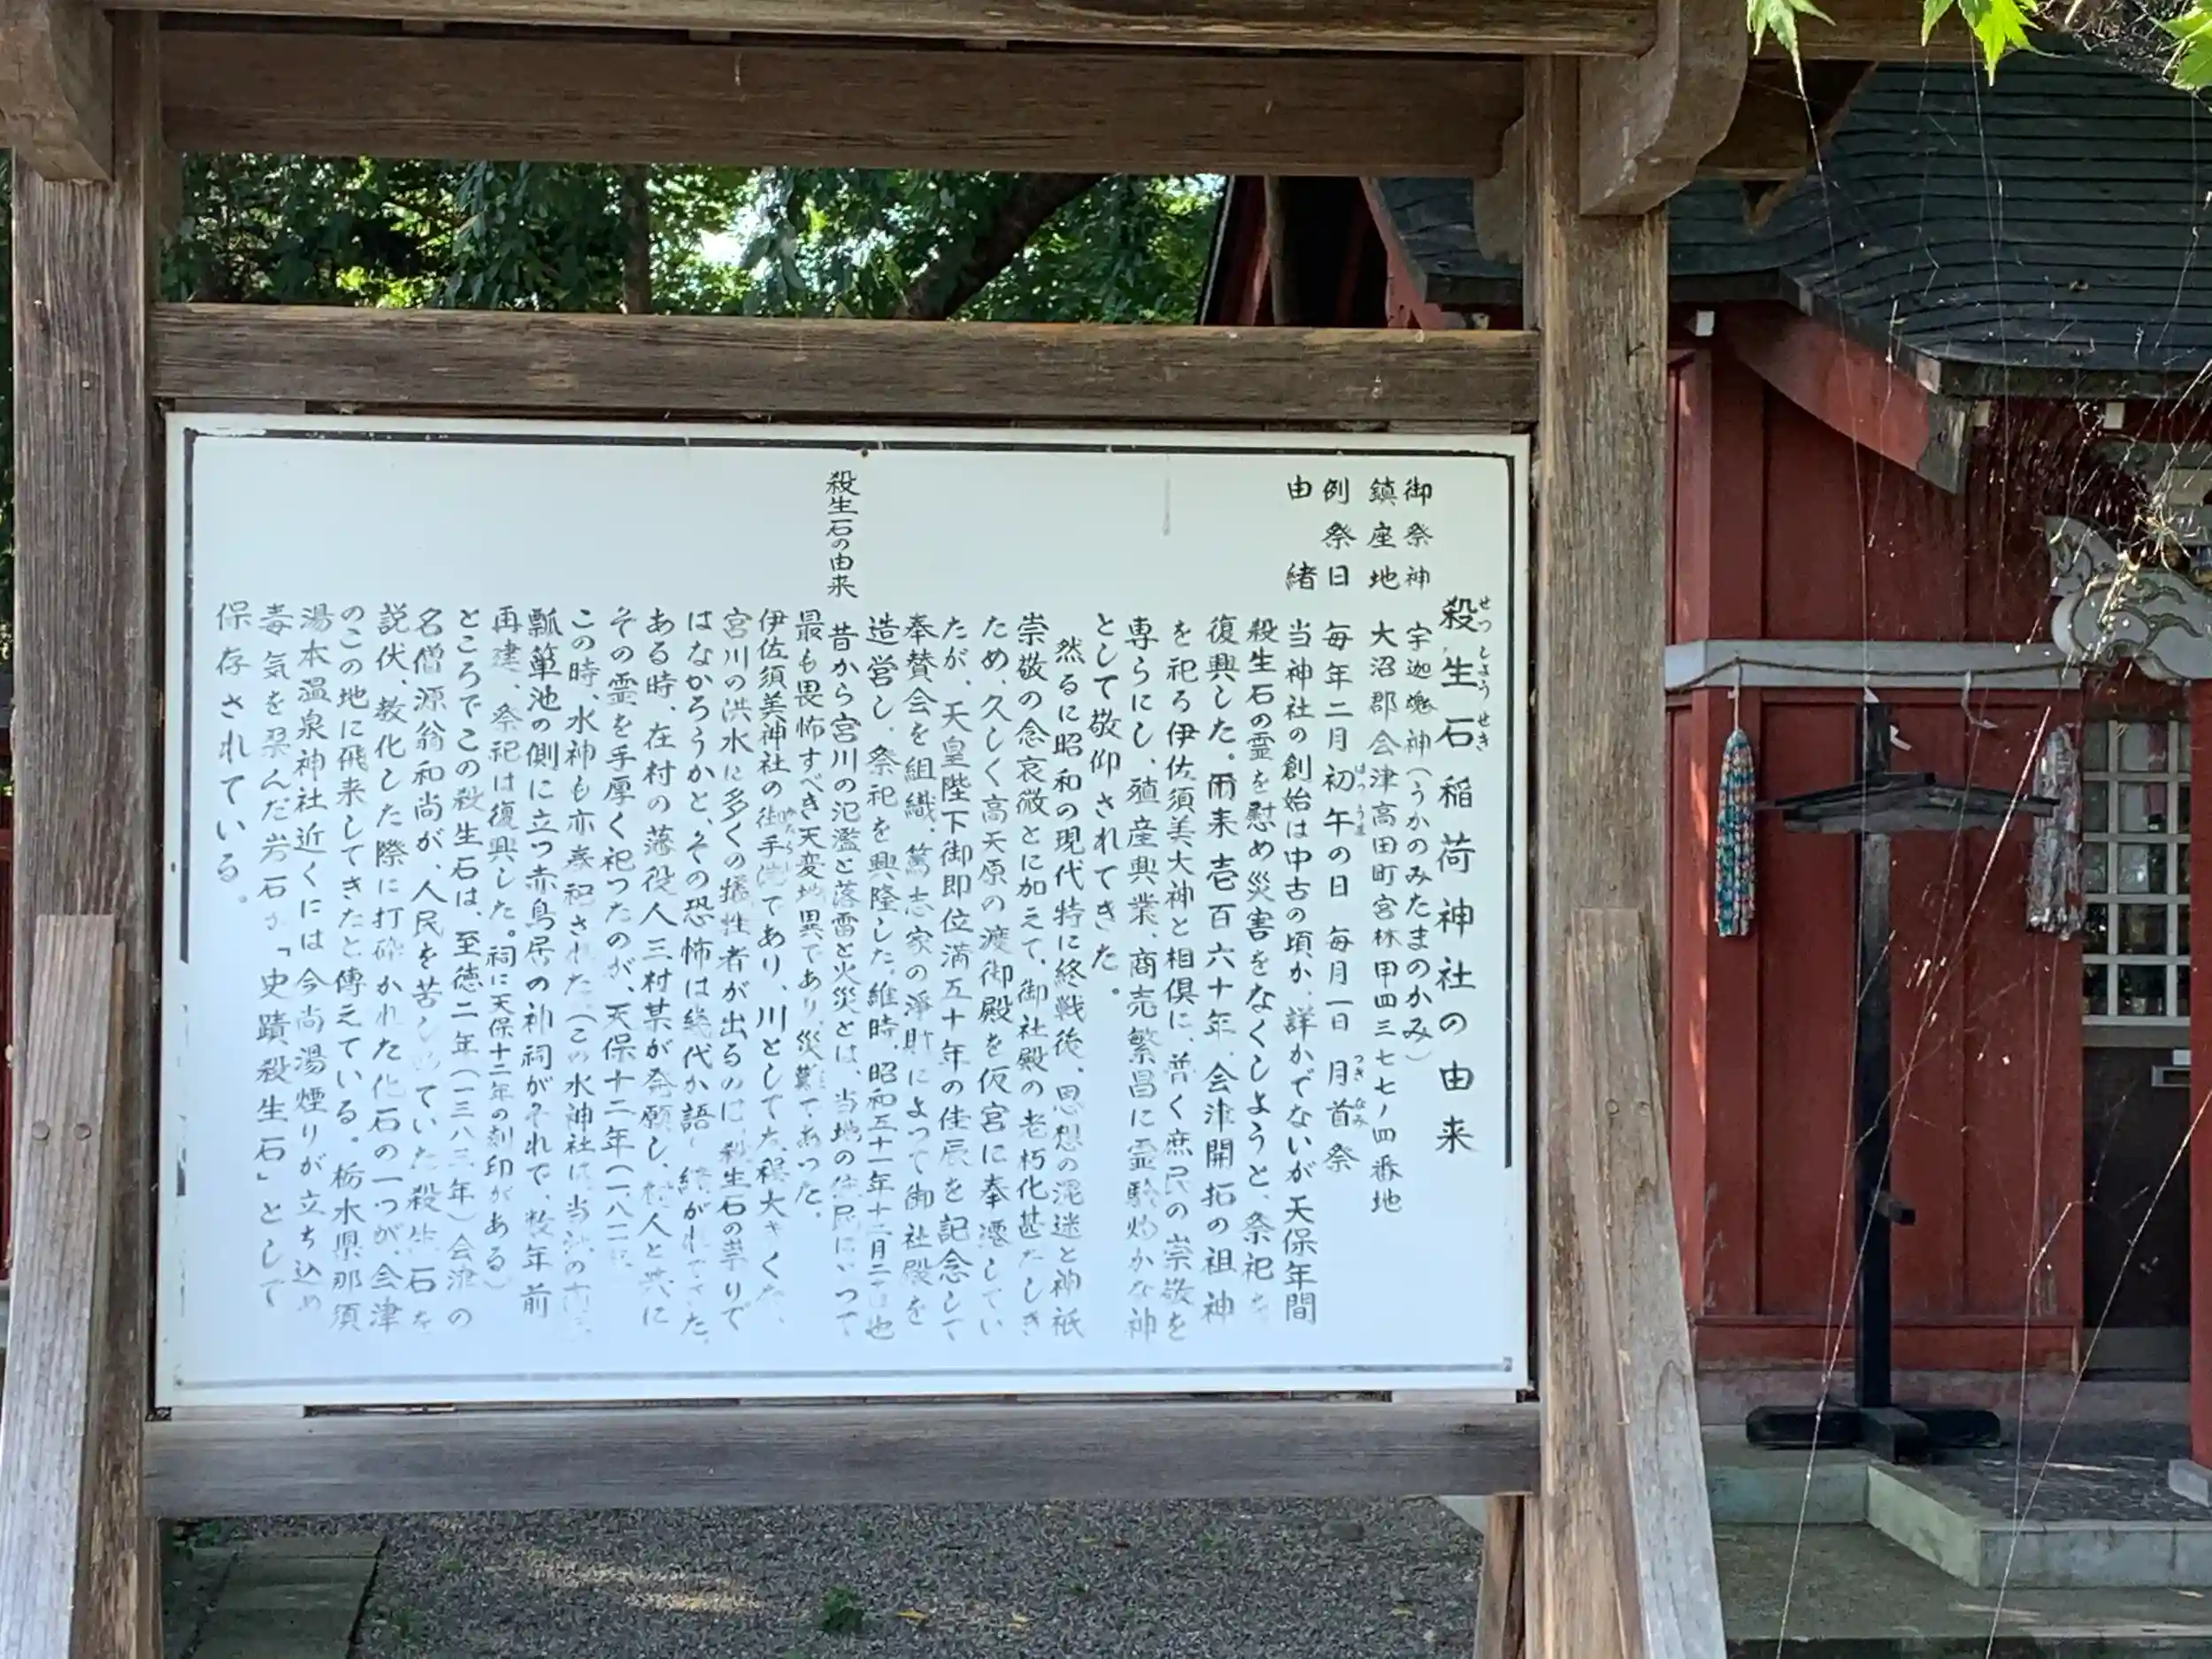 殺生石稲荷神社の由来
せつしょうせき
御祭神 宇迦魂神(うかのみたまのかみ)
鎮座地 大沼郡会津高田町宮林甲四三七七ノ四番地
例祭日 毎年二月初午の日 毎月一日 月首祭
はつうま つきなみ
由緒 当神社の創始は中古の頃か、詳かでないが天保年間
殺生石の霊を慰め災害をなくしようと、祭祀を
復興した。爾来壱百六十年、会津開拓の祖神
を祀る伊佐須美大神と相倶に、普く庶民の崇敬を
専らにし、殖産興業、商売繁昌に霊験灼かな神
として敬仰されてきた。
然るに昭和の現代特に終戦後、思想の混迷と神祇
崇敬の念哀微とに加えて、御社殿の老朽化甚だしき
ため、久しく高天原の渡御殿を仮宮に奉遷してい
たが、天皇陛下御即位満五十年の佳辰を記念して
奉賛会を組織、篤志家の浄財によって御社殿を
造営し、祭祀を興隆した。維時、昭和五十一年十二月二 也
殺生石の由来 昔から宮川の氾濫と落雷と火災とは、当地の住民にとって
最も畏怖すべき天変地異であり、災難であった。
伊佐須美神社の御手洗であり、川としても大きく、
みたらし
宮川の洪水に多くの犠牲者が出るのは、殺生石の祟りで
はなかろうかと、その恐怖は幾代か語り継がれてきた。
ある時、在村の藩役人三村某が発願し、村人と共に
その霊を手厚く祀ったのが、天保十二年(一八一
この時、水神も亦奉祀された。(この水神社は、当 の
瓢簞池の側に立つ赤鳥居の神祠がそれで、数年前
再建、祭祀は復興した。祠に天保十二年の刻印がある)
ところでこの殺生石は、至徳二年(一三八三年)会津の
名僧源翁和尚が、人民を苦しめていた殺生石を
説伏、教化した際に打砕かれた化石の一つが、会津
のこの地に飛来してきたと傳えている。栃木県那須
湯本温泉神社近くには今尚湯煙りが立ち込め
毒気を孕んだ岩石が「史蹟殺生石」として
保存されている。